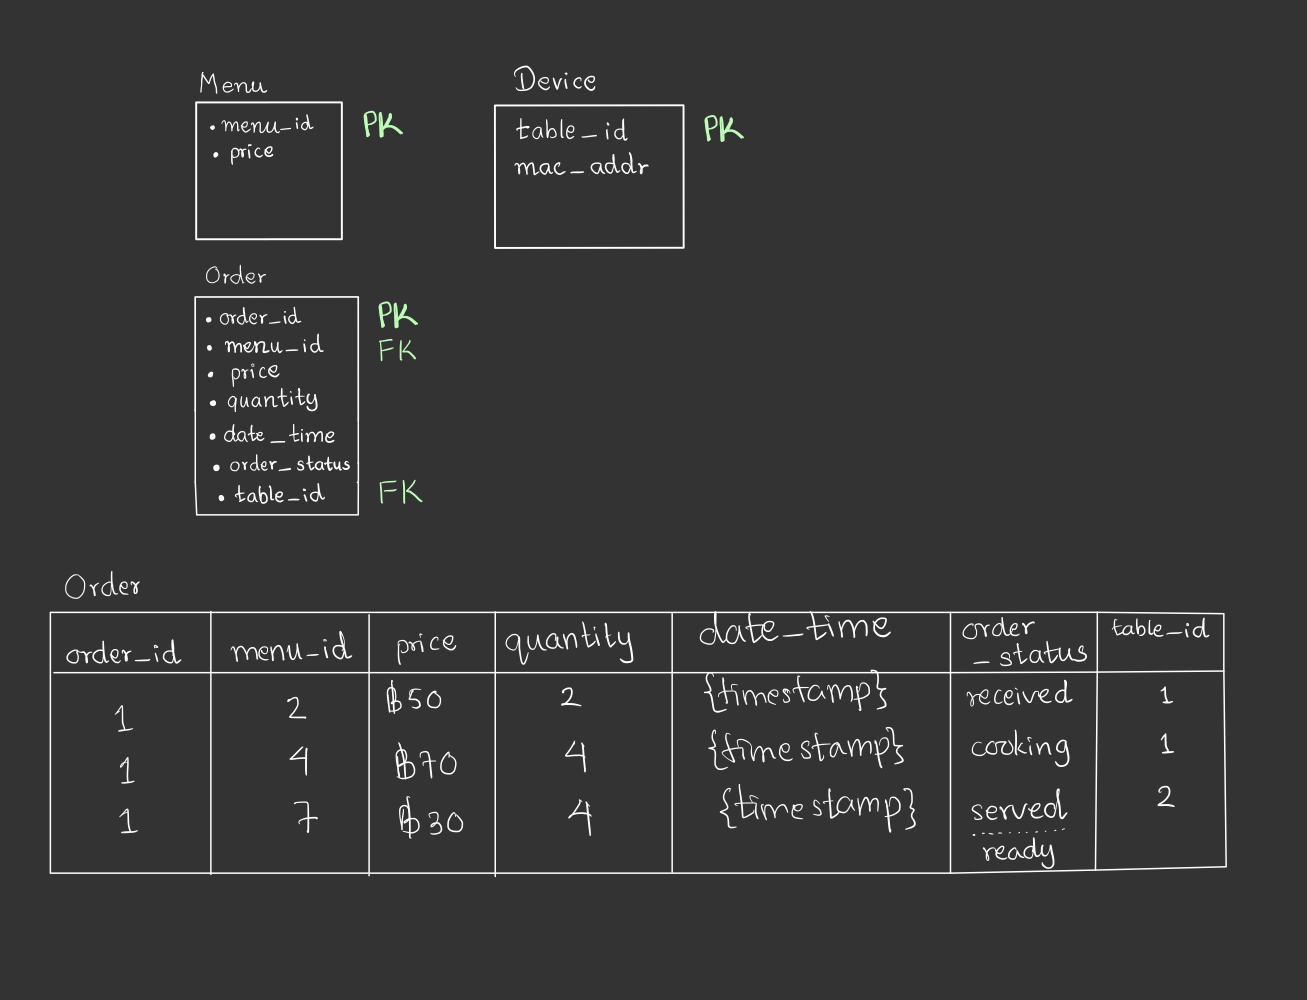 Menu
• menu_id PK
• price
Device
table_id PK
mac_addr
Order
• order_id PK
• menu_id FK
• price
• quantity
• date_time
• order_status
• table_id FK
Order
order_id menu_id price quantity date_time order_status table_id
1 2 ฿50 2 {timestamp} received 1
1 4 ฿70 4 {timestamp} cooking 1
1 7 ฿30 4 {timestamp} served 2
ready